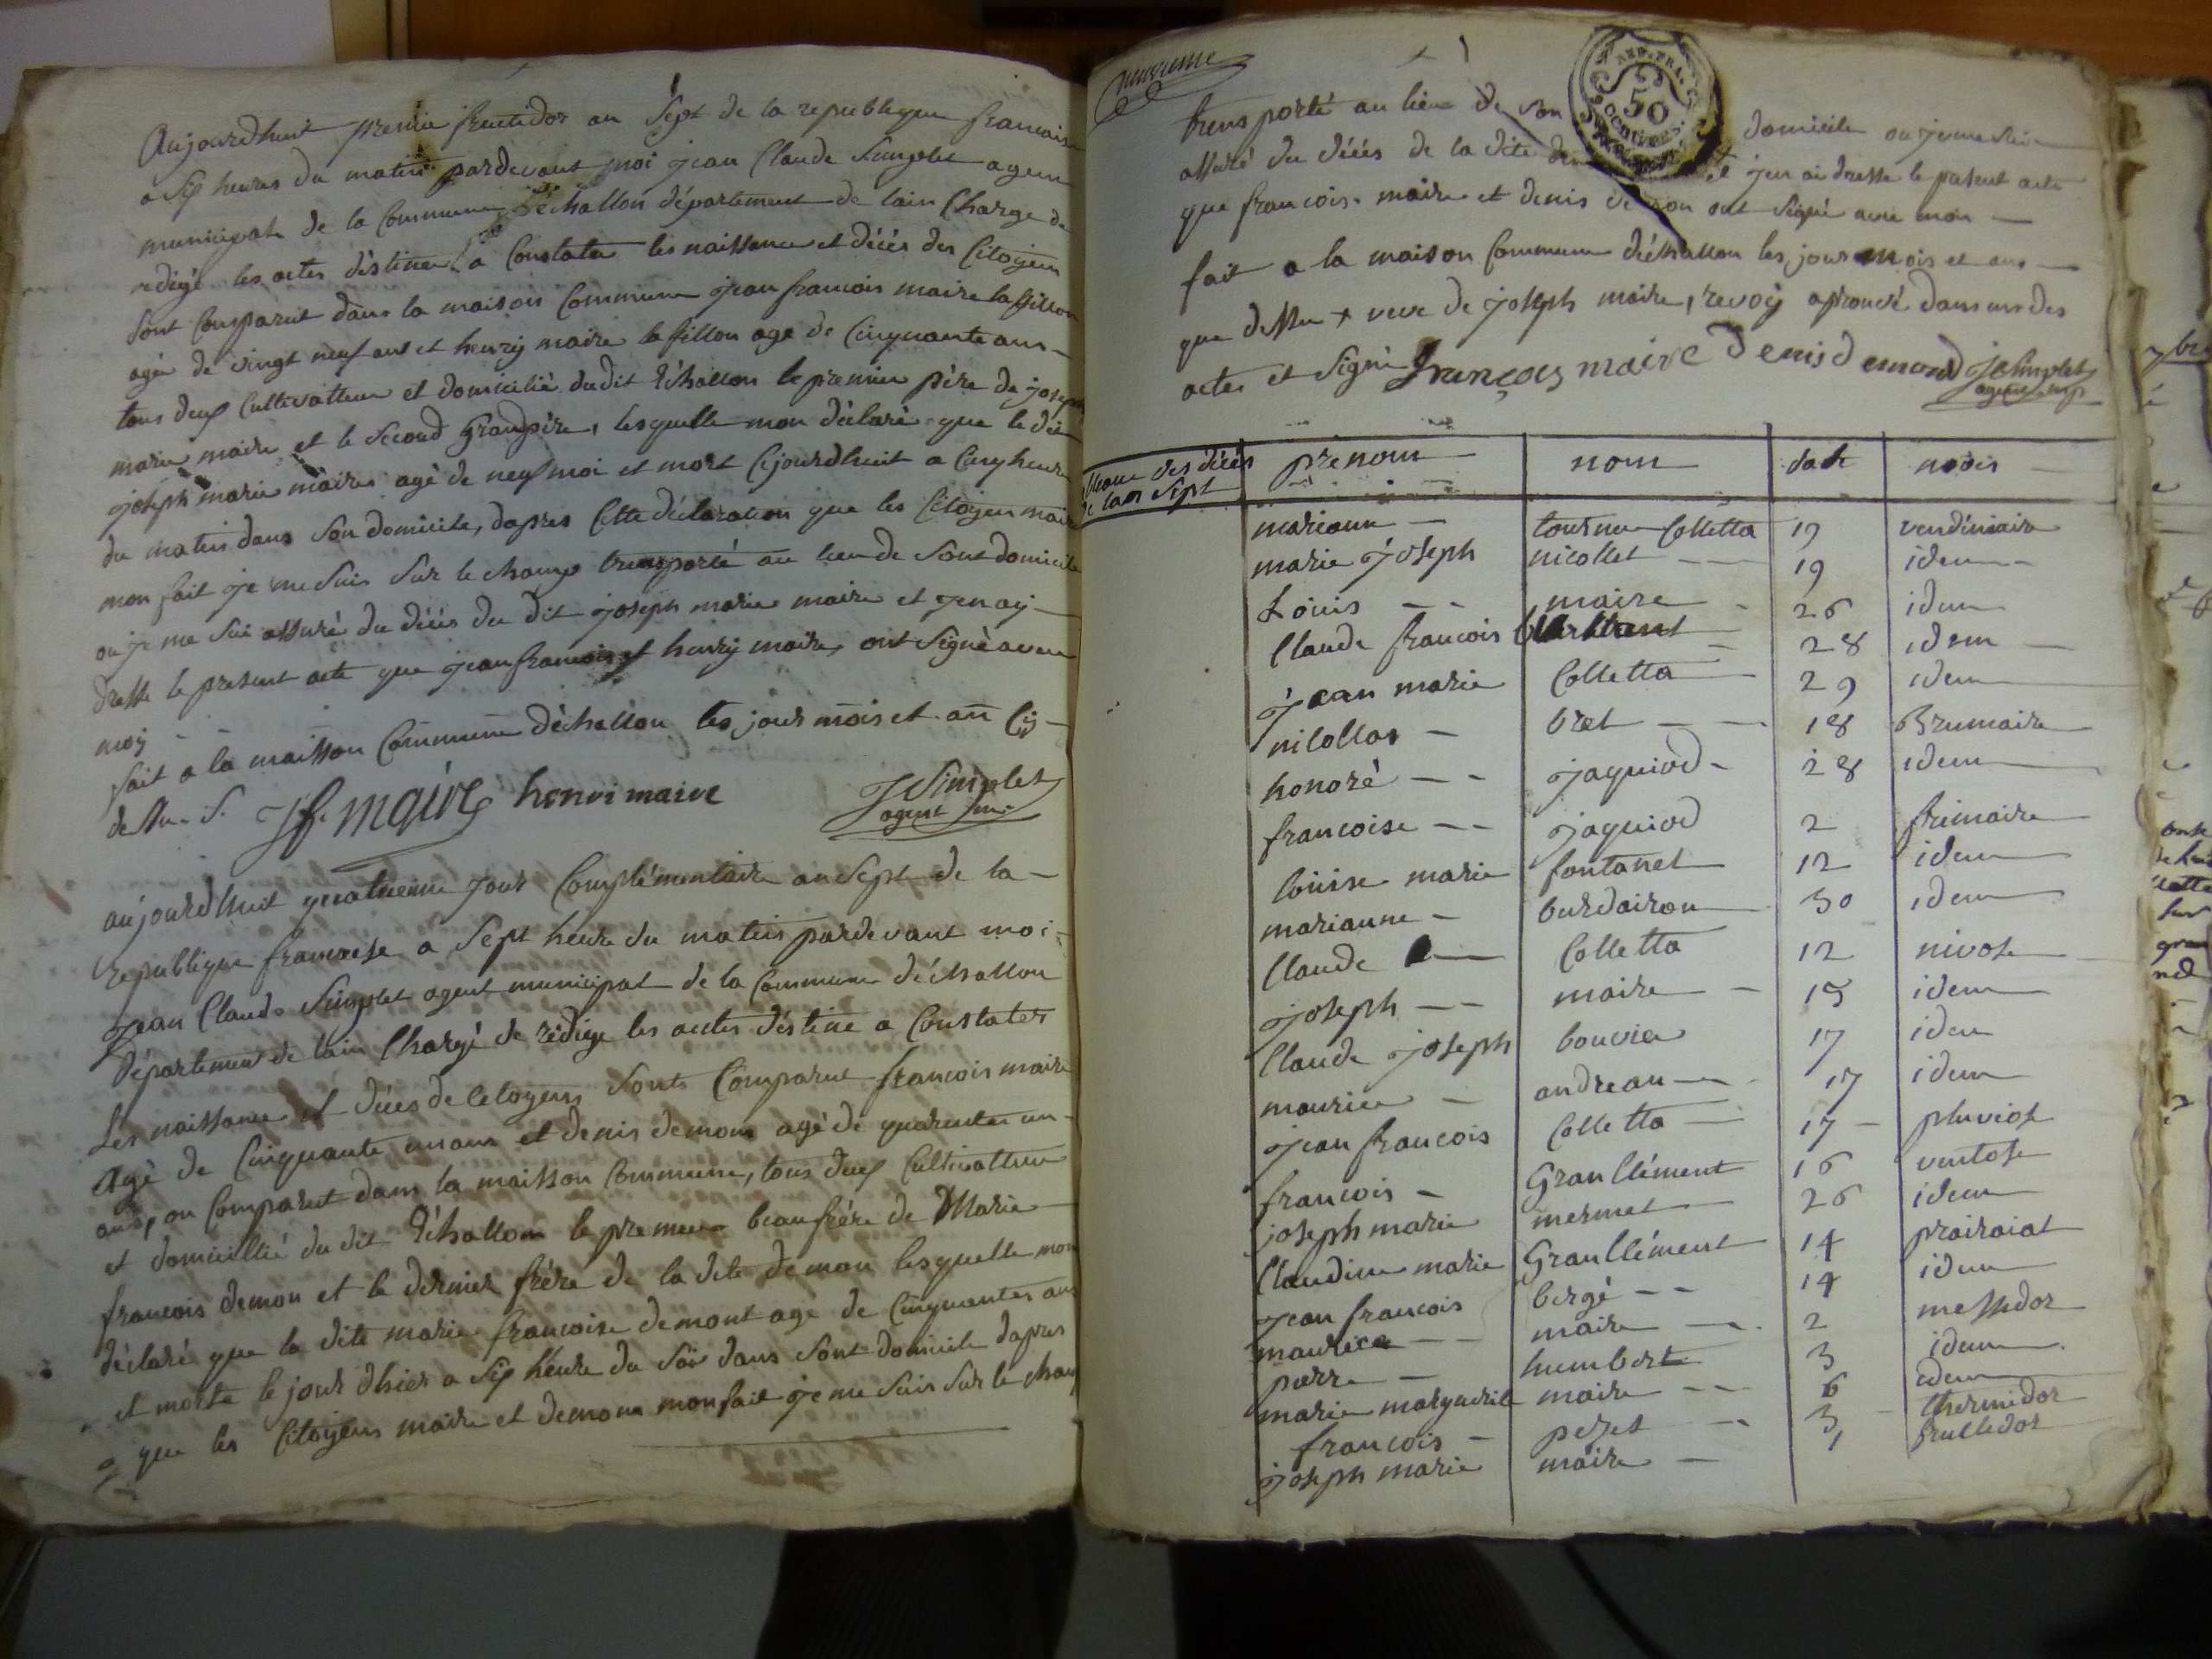 Aujourdhuit premie fructidor an Sept de la republique francaise
a Six heures du matin pardevant moi jean Claude Simplet agent
municipale de la Commune déchallon département de lain Charge de
redigé les actes déstiner a Constater les naissance et décés des Citoyens
Sont Comparut dans la maison Commune jean francois maire la fillon
agé de vingt neuf ans et henry maire la fillon age de Cinquante ans
tous deux Cultivatteur et domicilié dudit Echallon le premier pére de joseph
marie maire et le Second Grandpére, lesquelle mon déclaré que le dit
joseph marie maire agé de neuf moi et mort Cejourdhuit a Cinq heure
du matin dans Son domicile, dapres Cette déclaration que les Citoyen maire
mon fait je me Suis Sur le champ transporté au lieu de Sont domicile
ou je me Sui assuré du décés du dit joseph marie maire et jen ay
dresse le present acte que jean francois et henry maire, ont Signé avec
moy
fait a la maisson Commune déchallon les jour mois et an Cy
dessu. S. J f. maire henri maire JSimplet
agent
aujourdhuit quatrieme jour Complémentaire an Sept de la
republique francaise a Sept heure du matin pardevant moi
jean Claude Simplet agent municipal de la Commune déchallon
Département de lain Chargé de rédige les actes déstine a Constater
Les naissance et décés de Citoyens Sonts Comparut francois maire
Agé de Cinquante un ans et denis demon agé de quarentes un
ans, on Comparut dans la maisson Commune, tous deux Cultivatteur
et domicillié du dit Echallon le premier beaufrére de Marie
francois demon et le dernier frére de la dite demon lesquelle mon
déclaré que la dite marie francoise demont age de Cinquantes ans
et morte le jour dhier a Six heure du Soir dans Sont domicile dapres
que les Citoyens maire et demon mon fait je me Suis Sur le champ
transporté au lieu de Son domicile ou je me Suis
REP. FRA.
50
CENTIMES
assuré du décés de la dite et jen ai dresse le present acte
que francois maire et denis ont Signé avec moi
fait a la maison Commune déchallon les jour mois et ans
que dessu + veve de joseph maire, revoy aprouvé dans un des
actes et Signé françois maire Denis demond JSimplet
agent
des décés
de lan Sept
prenom nom date mois
marianne tournu Colletta 19 vendémiaire
marie joseph nicollet 19 idem
Louis maire 26 idem
Claude francois 28 idem
jean marie Colletta 29 idem
nicollas bret 18 Brumaire
honoré jaquiod 28 idem
francoise jaquiod 2 frimaire
louise marie fontanel 12 idem
marianne burdairon 30 idem
Claude Colletta 12 nivose
joseph maire 15 idem
Claude joseph bouvier 17 idem
maurice andreau 17 idem
jean francois Colletta 17 pluviose
francois GranClément 16 ventose
joseph marie mermet 26 idem
Claudine marie GranClément 14 prairaiat
jean francois bergé 14 idem
maurice maire 2 messidor
pierre humbert 3 idem
marie marguerite maire 6 idem
francois peret 3 thermidor
joseph marie maire 1 fructidor